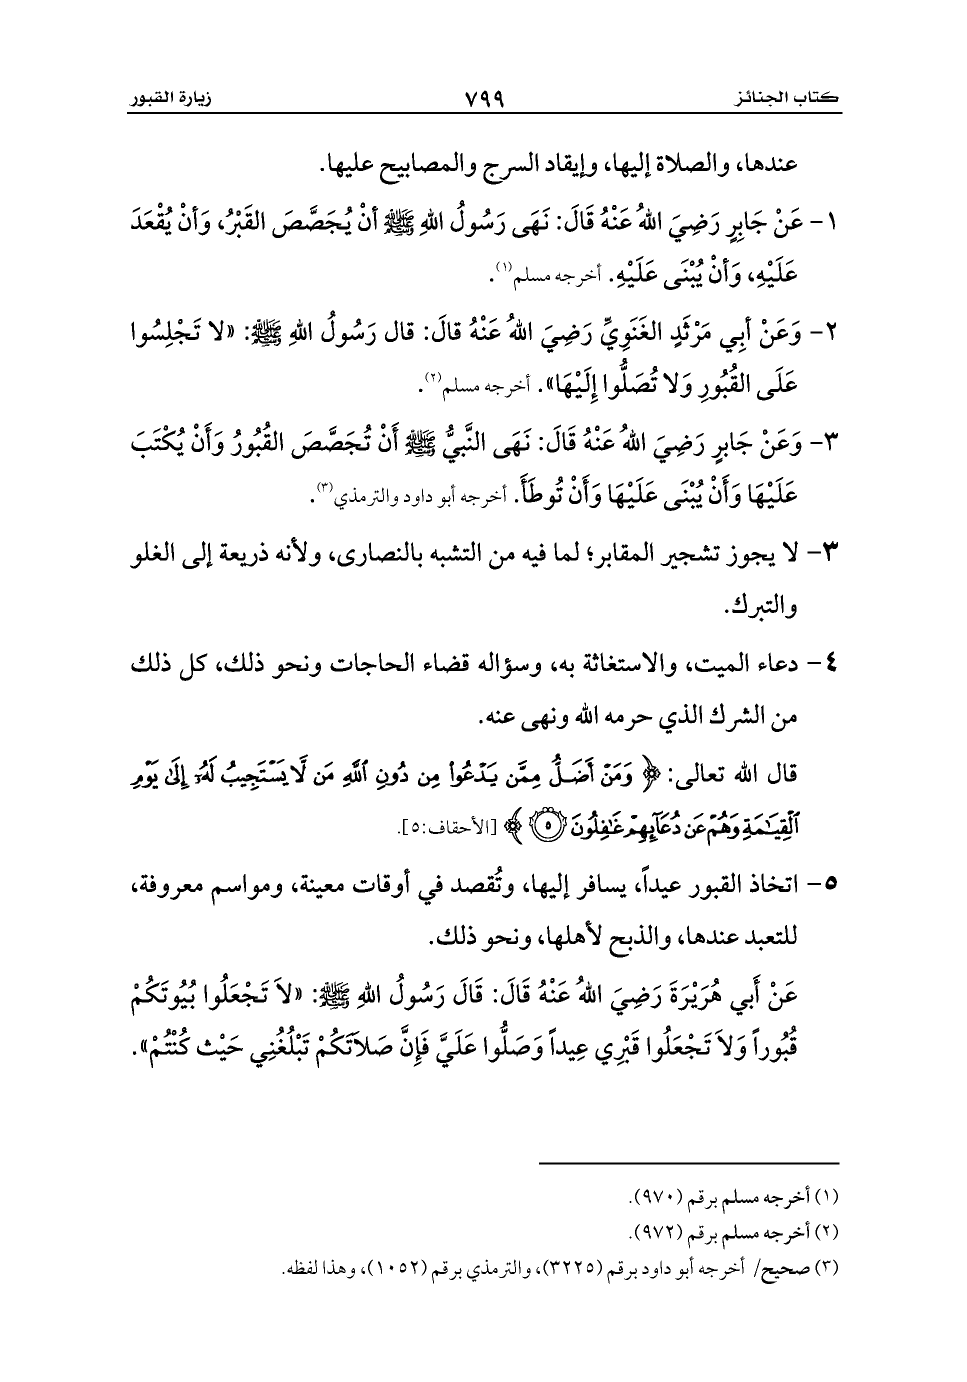 كتاب الجنائز ٧٩٩ زيارة القبور
عندها، والصلاة إليها، وإيقاد السرج والمصابيح عليها.
١- عَنْ جَابِرٍ رَضِيَ اللهُ عَنْهُ قَالَ: نَهَى رَسُولُ اللهِ ﷺ أنْ يُجَصَّصَ القَبْرُ، وَأنْ يُقْعَدَ
عَلَيْهِ، وَأنْ يُبْنَى عَلَيْهِ. أخرجه مسلم(١).
٢- وَعَنْ أبِي مَرْثَدٍ الغَنَوِيِّ رَضِيَ اللهُ عَنْهُ قالَ: قال رَسُولُ اللهِ ﷺ: «لا تَجْلِسُوا
عَلَى القُبُورِ وَلا تُصَلُّوا إلَيْهَا». أخرجه مسلم(٢).
٣- وَعَنْ جَابرٍ رَضِيَ اللهُ عَنْهُ قَالَ: نَهَى النَّبِيُّ ﷺ أَنْ تُجَصَّصَ القُبُورُ وَأَنْ يُكْتَبَ
عَلَيْهَا وَأَنْ يُبْنَى عَلَيْهَا وَأَنْ تُوطَأَ. أخرجه أبو داود والترمذي(٣).
٣- لا يجوز تشجير المقابر؛ لما فيه من التشبه بالنصارى، ولأنه ذريعة إلى الغلو
والتبرك.
٤- دعاء الميت، والاستغاثة به، وسؤاله قضاء الحاجات ونحو ذلك، كل ذلك
من الشرك الذي حرمه الله ونهى عنه.
قال الله تعالى: ﴿وَمَنْ أَضَلُّ مِمَّن يَدْعُواْ مِن دُونِ ٱللَّهِ مَن لَّا يَسْتَجِيبُ لَهُۥٓ إِلَىٰ يَوْمِ
ٱلْقِيَـٰمَةِ وَهُمْ عَن دُعَآئِهِمْ غَـٰفِلُونَ ٥﴾ [الأحقاف:٥].
٥- اتخاذ القبور عيداً، يسافر إليها، وتُقصد في أوقات معينة، ومواسم معروفة،
للتعبد عندها، والذبح لأهلها، ونحو ذلك.
عَنْ أَبي هُرَيْرَةَ رَضِيَ اللهُ عَنْهُ قَالَ: قَالَ رَسُولُ اللهِ ﷺ: «لاَ تَجْعَلُوا بُيُوتَكُمْ
قُبُوراً وَلاَ تَجْعَلُوا قَبْرِي عِيداً وَصَلُّوا عَلَيَّ فَإِنَّ صَلاَتَكُمْ تَبْلُغُنِي حَيْث كُنْتُمْ».
(١) أخرجه مسلم برقم (٩٧٠).
(٢) أخرجه مسلم برقم (٩٧٢).
(٣) صحيح/ أخرجه أبو داود برقم (٣٢٢٥)، والترمذي برقم (١٠٥٢)، وهذا لفظه.